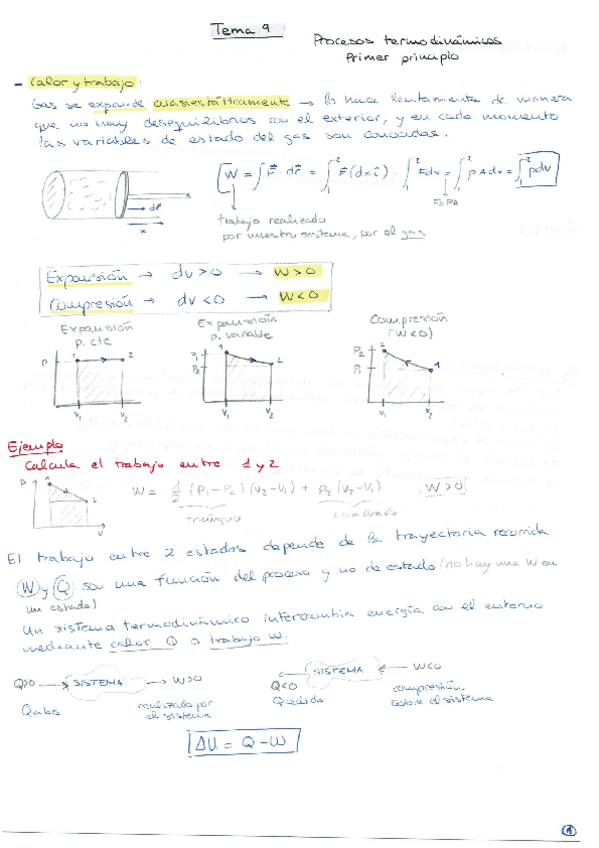 Tema 9
Procesos termodinámicos
Primer principio
- Calor y trabajo:
Gas se expande cuasiestáticamente → lo hace lentamente de manera
que no hay desequilibrios con el exterior, y en cada momento
las variables de estado del gas son conocidas.
W = ∫ F⃗ · dr⃗ = ∫₁² F⃗ (dx i⃗) = ∫₁² Fdx = ∫₁² pAdx = ∫₁² pdv
F=PA
dr⃗
x
trabajo realizado
por nuestro sistema, por el gas
Expansión → dv>0 → W>0
Compresión → dv<0 → W<0
Expansión
p. cte
Expansión
p. variable
Compresión
(W<0)
P 1 2 V₁ V₂
P₁ P₂ 1 2 V₁ V₂
P₂ P₁ 2 1 V₁ V₂
Ejemplo
Calcula el trabajo entre 1 y 2
P V
W = 1/2 (P₁-P₂)(V₂-V₁) + P₂(V₂-V₁) W>0
triángulo cuadrado
El trabajo entre 2 estados depende de la trayectoria recorrida
W y Q son una función del proceso y no de estado (no hay una W en
un estado)
Un sistema termodinámico intercambia energía con el entorno
mediante calor Q o trabajo W.
Q>0 → SISTEMA → W>0
Qabs
realizado por
el sistema
Q<0 ← SISTEMA ← W<0
Qcedido
compresión,
sobre el sistema
ΔU = Q-W
1